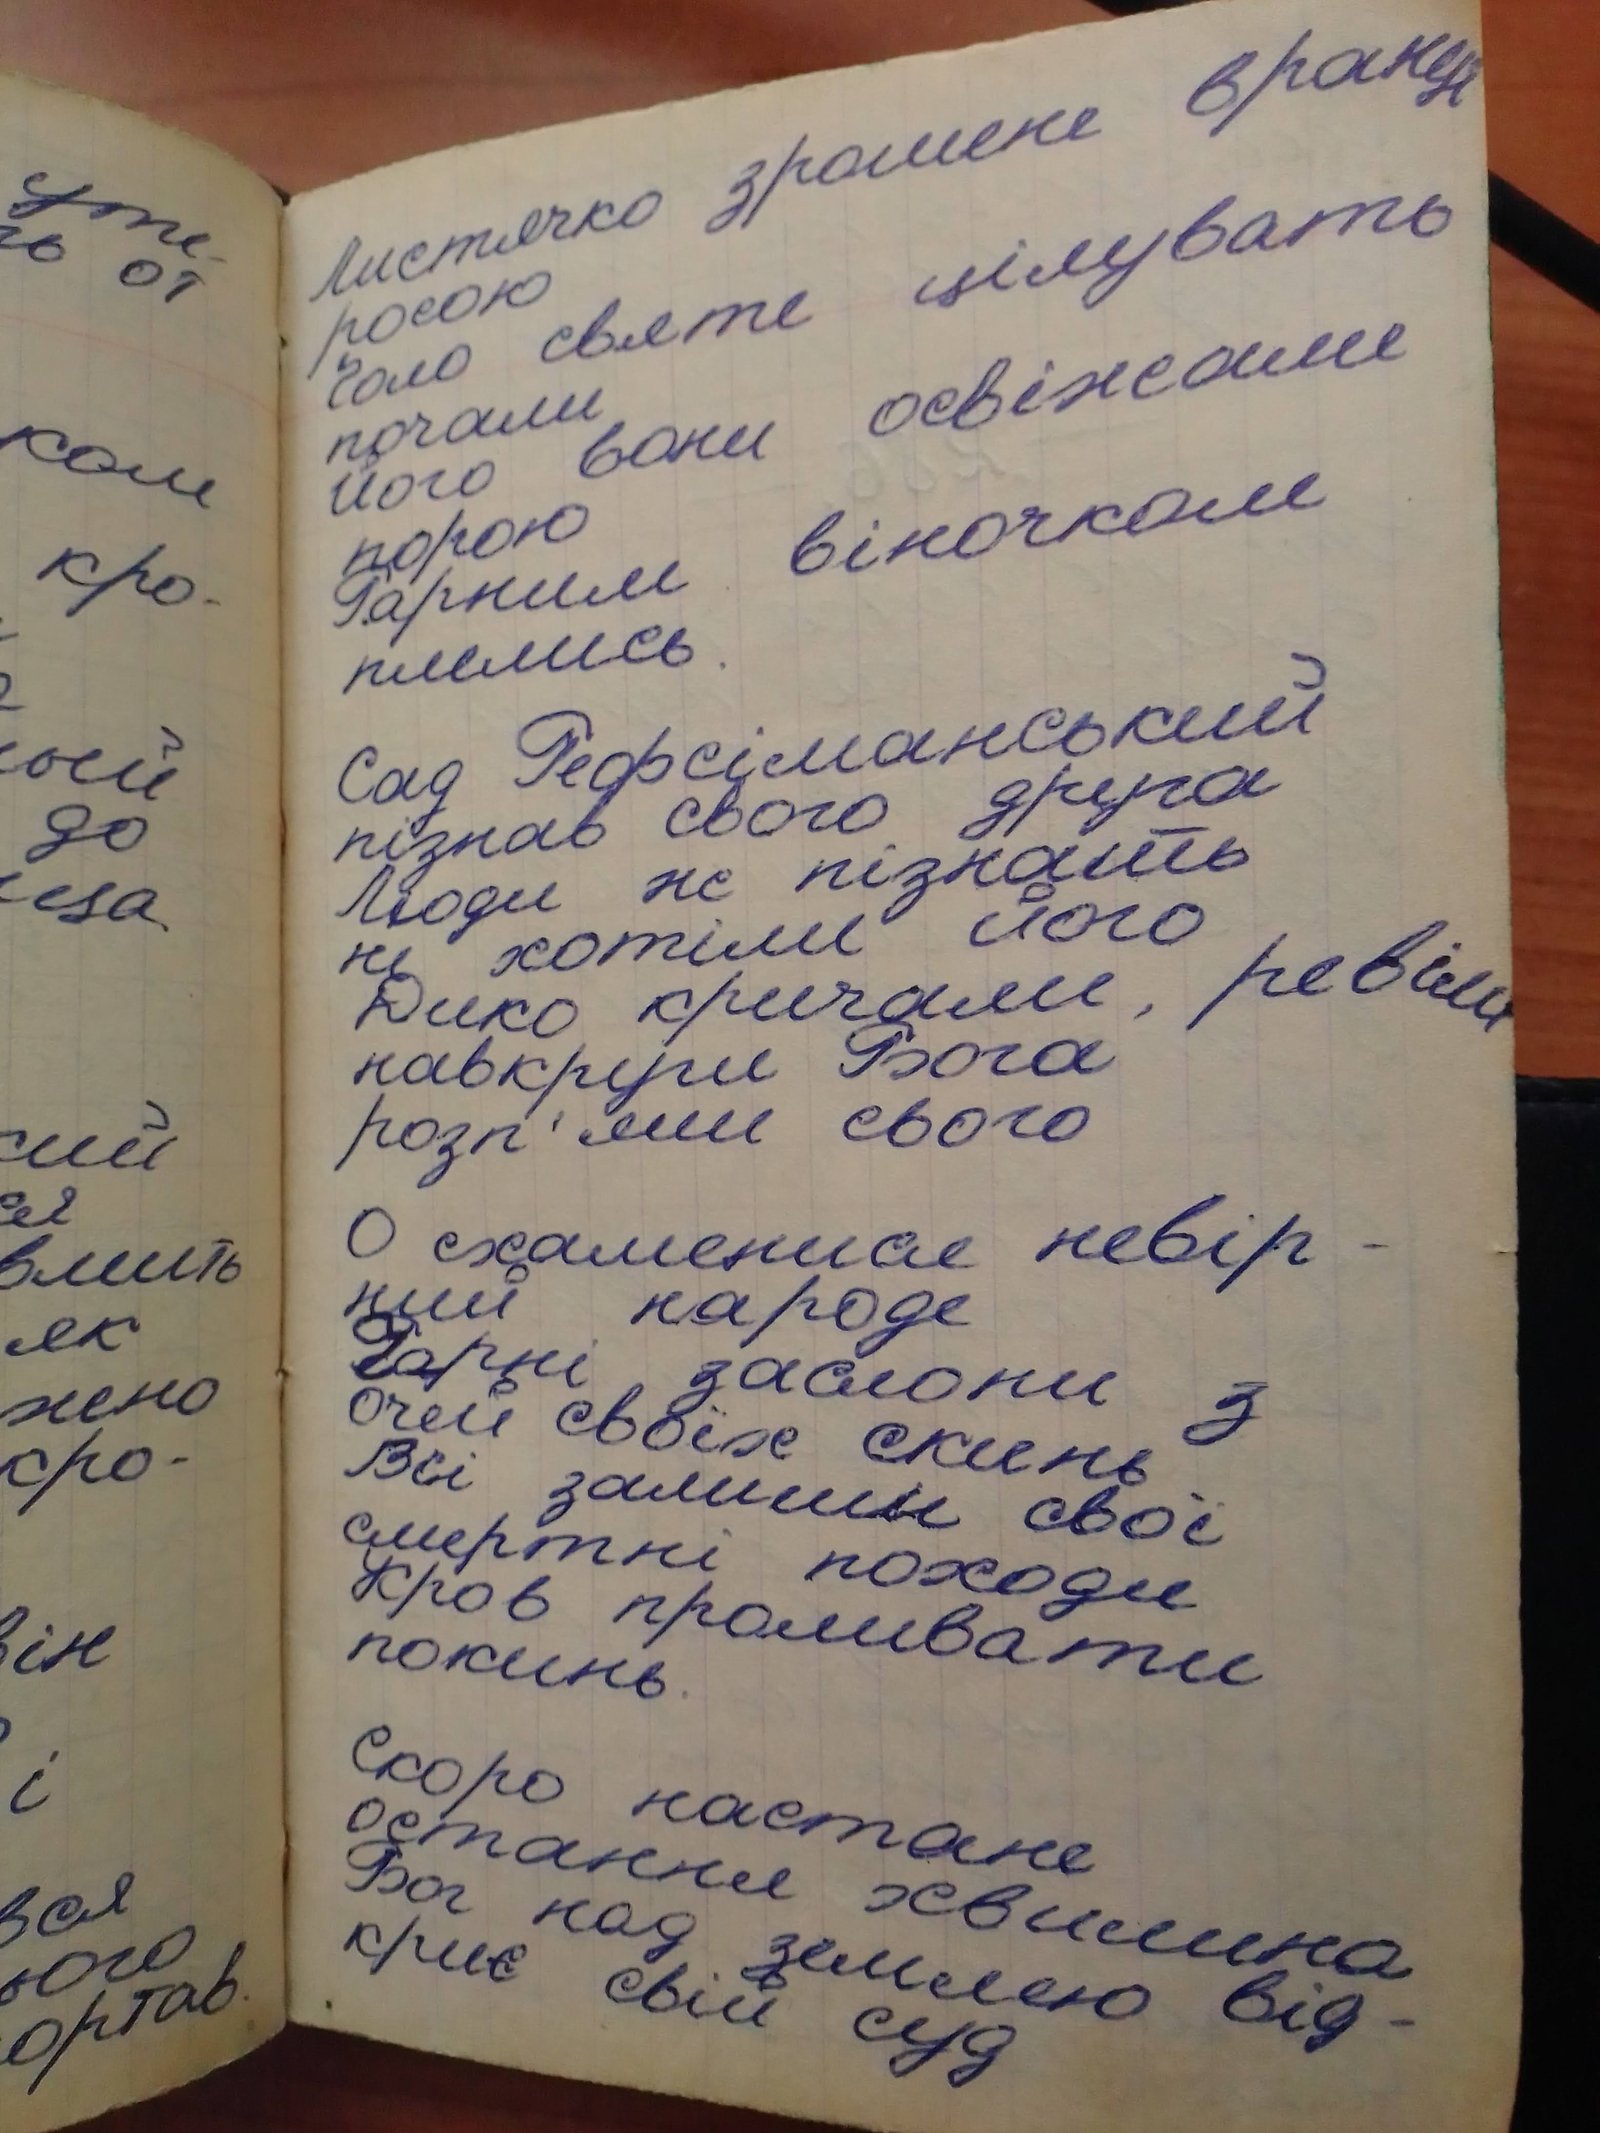 Уте-
ть от
ком
кро-
ный
до
сий
ся
вмить
як
жено
кро-
він
і
вся
ього
ортав.
Листячко зрошене вранці
росою
Чоло святе цілувать
почали
Його вони освіжали
порою
Гарним віночком
плелись.
Сад Гефсіманський
пізнав свого друга
Люди же пізнать
не хотіли його
Дико кричали, ревіли
навкруги Бога
розп'яли свого
О схаменися невір-
ний народе
Чорні заслони з
очей своїх скинь
Всі залиши свої
смертні походи
Кров проливати
покинь.
Скоро настане
остання хвилина
Бог над землею від-
криє свій суд